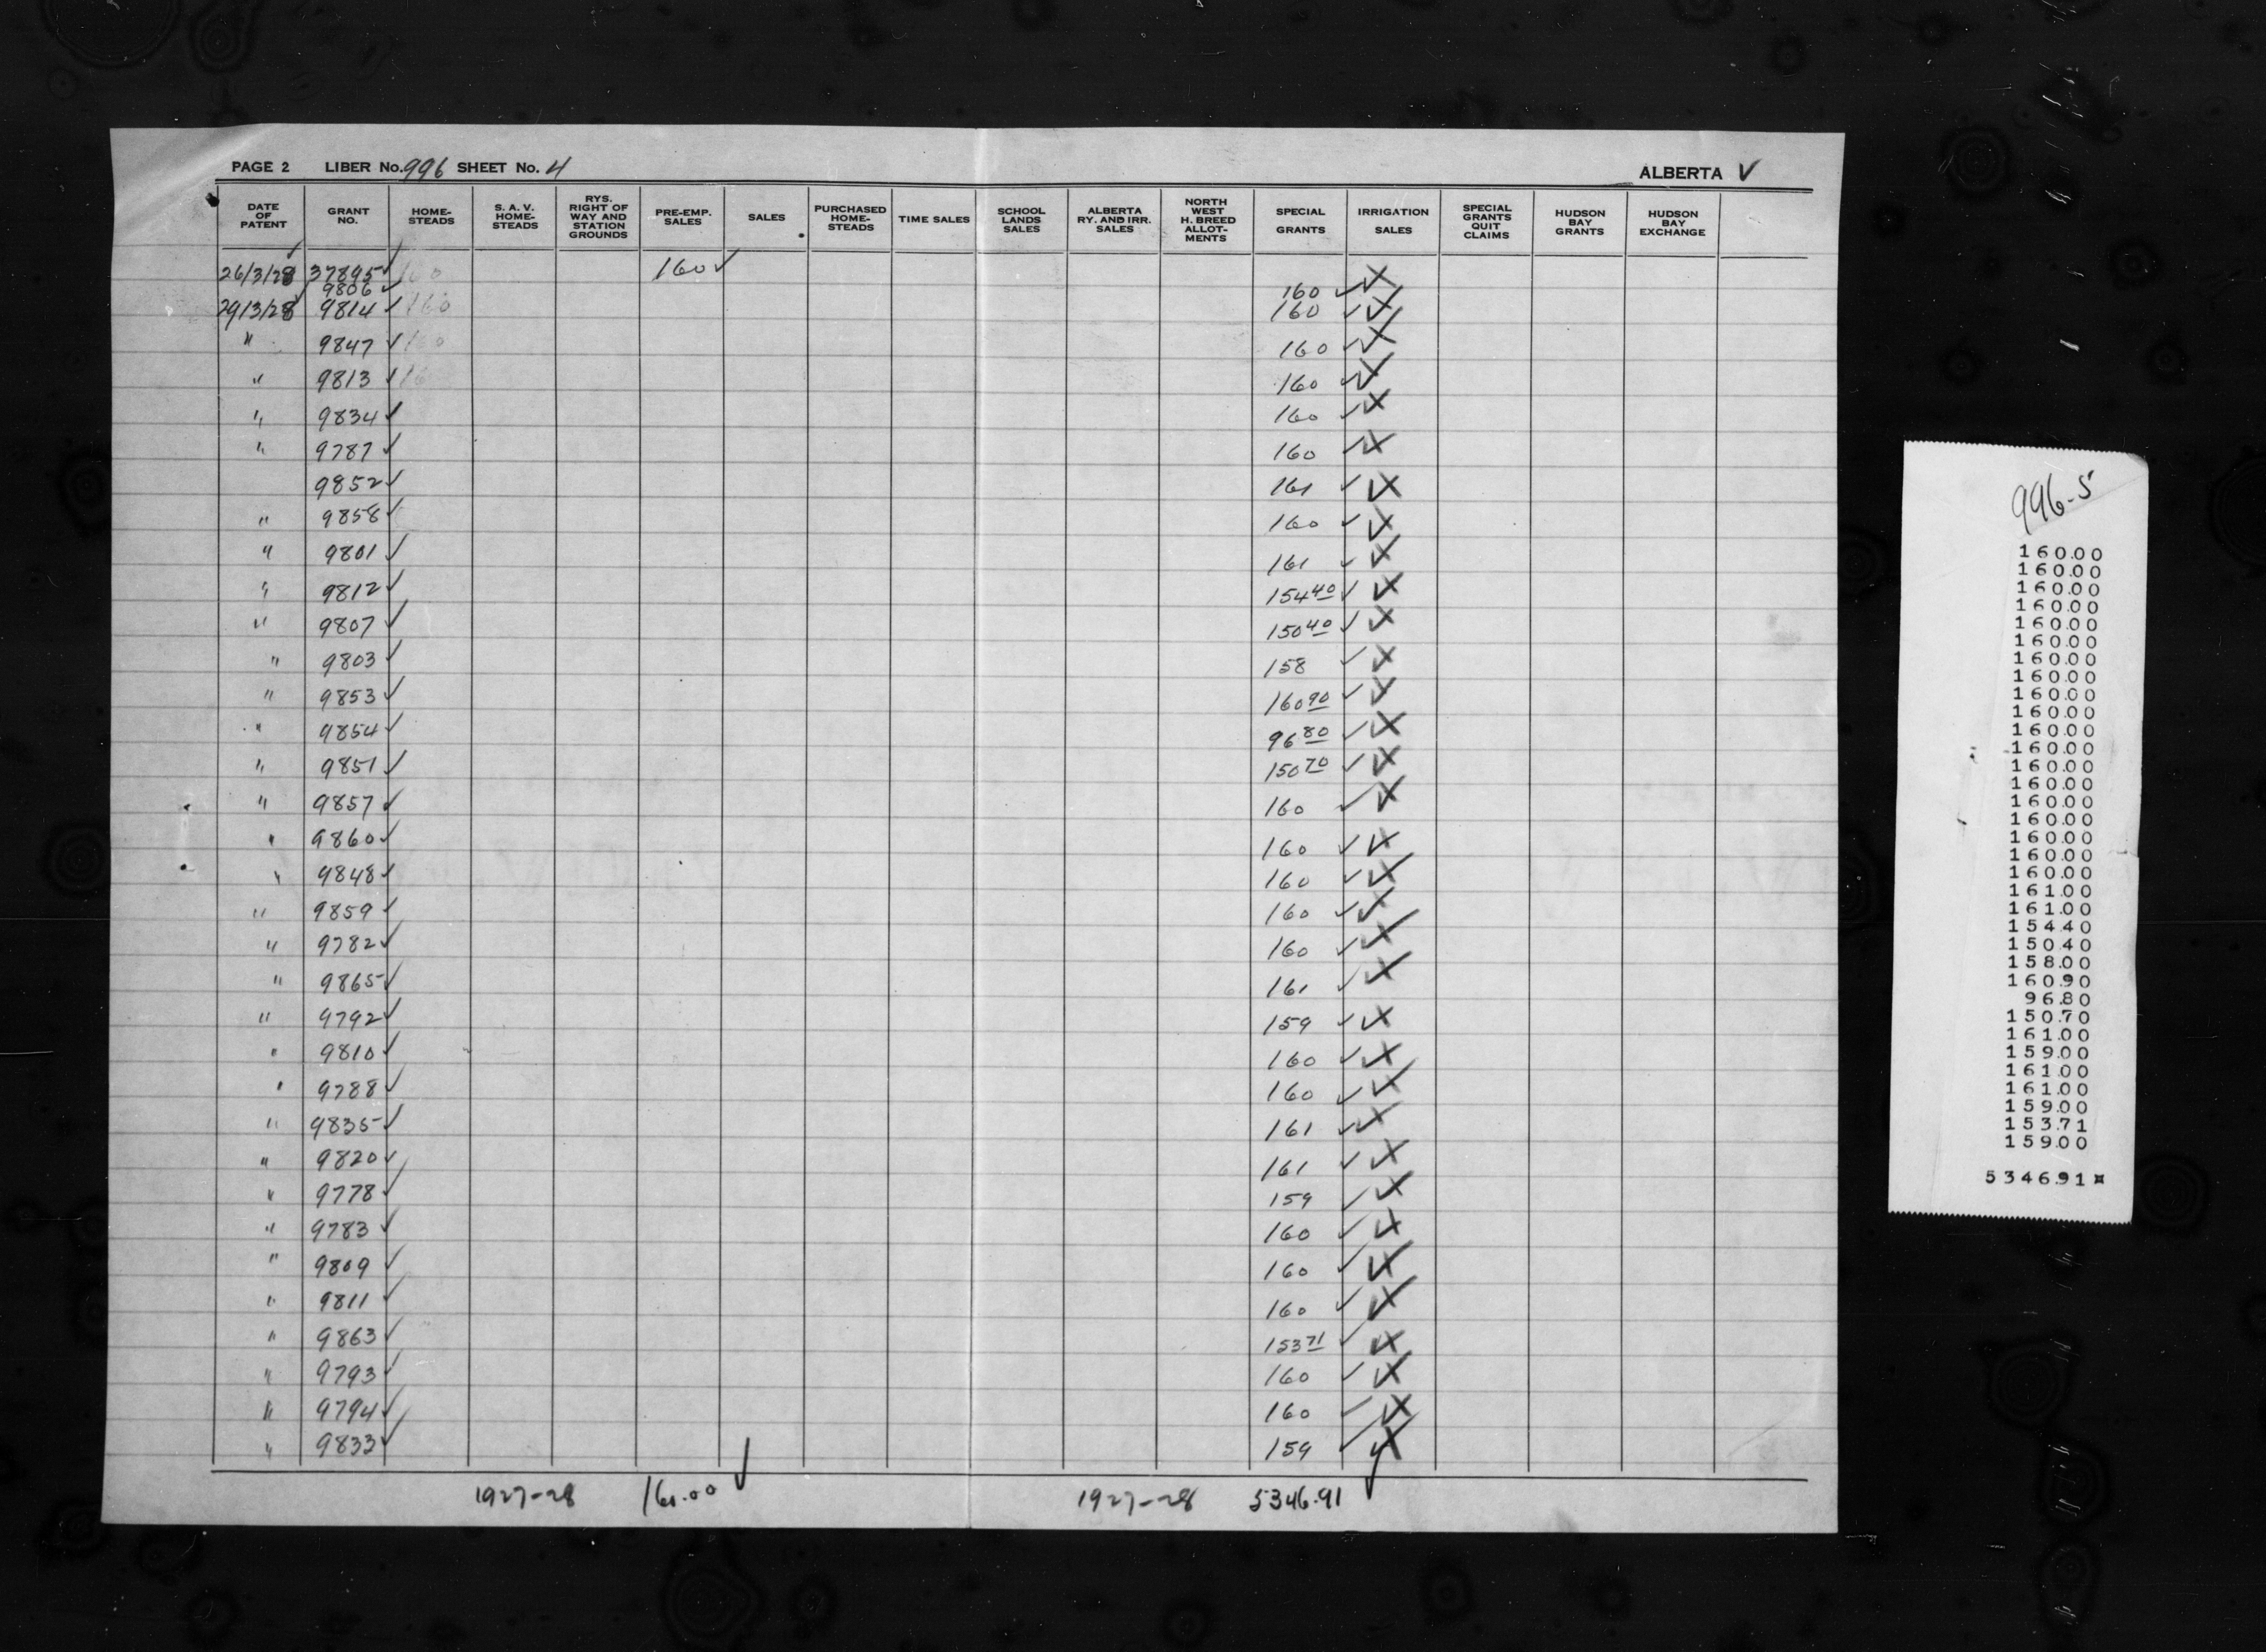 PAGE 2 LIBER No. 996 SHEET No. 4 ALBERTA ✓
DATE OF PATENT GRANT NO. HOME-STEADS S. A. V. HOME-STEADS RYS. RIGHT OF WAY AND STATION GROUNDS PRE-EMP. SALES SALES PURCHASED HOME-STEADS TIME SALES SCHOOL LANDS SALES ALBERTA RY. AND IRR. SALES NORTH WEST H. BREED ALLOT-MENTS SPECIAL GRANTS IRRIGATION SALES SPECIAL GRANTS QUIT CLAIMS HUDSON BAY GRANTS HUDSON BAY EXCHANGE
26/3/28 37895 ✓ 160 160 ✓
9806 ✓ 160 ✓ X
29/3/28 9814 ✓ 160 160 ✓ X
" 9847 ✓ 160 160 ✓ X
" 9813 ✓ 16 160 ✓ X
" 9834 ✓ 160 ✓ X
" 9787 ✓ 160 ✓ X
9852 ✓ 161 ✓ X
" 9858 ✓ 160 ✓ X
" 9801 ✓ 161 ✓ X
" 9812 ✓ 154 40 ✓ X
" 9807 ✓ 150 40 ✓ X
" 9803 ✓ 158 ✓ X
" 9853 ✓ 160 90 ✓ X
" 9854 ✓ 96 80 ✓ X
" 9851 ✓ 150 70 ✓ X
" 9857 ✓ 160 ✓ X
" 9860 ✓ 160 ✓ X
" 9848 ✓ 160 ✓ X
" 9859 ✓ 160 ✓ X
" 9782 ✓ 160 ✓ X
" 9865 ✓ 161 ✓ X
" 9792 ✓ 159 ✓ X
" 9810 ✓ 160 ✓ X
" 9788 ✓ 160 ✓ X
" 9835 ✓ 161 ✓ X
" 9820 ✓ 161 ✓ X
" 9778 ✓ 159 ✓ X
" 9783 ✓ 160 ✓ X
" 9809 ✓ 160 ✓ X
" 9811 ✓ 160 ✓ X
" 9863 ✓ 153 71 ✓ X
" 9793 ✓ 160 ✓ X
" 9794 ✓ 160 ✓ X
" 9833 ✓ 159 ✓ X
1927-28 160.00 ✓ 1927-28 5346.91 ✓
996-5
160.00
160.00
160.00
160.00
160.00
160.00
160.00
160.00
160.00
160.00
160.00
160.00
160.00
160.00
160.00
160.00
160.00
160.00
160.00
161.00
161.00
154.40
150.40
158.00
160.90
96.80
150.70
161.00
159.00
161.00
161.00
159.00
153.71
159.00
5346.91 ¤